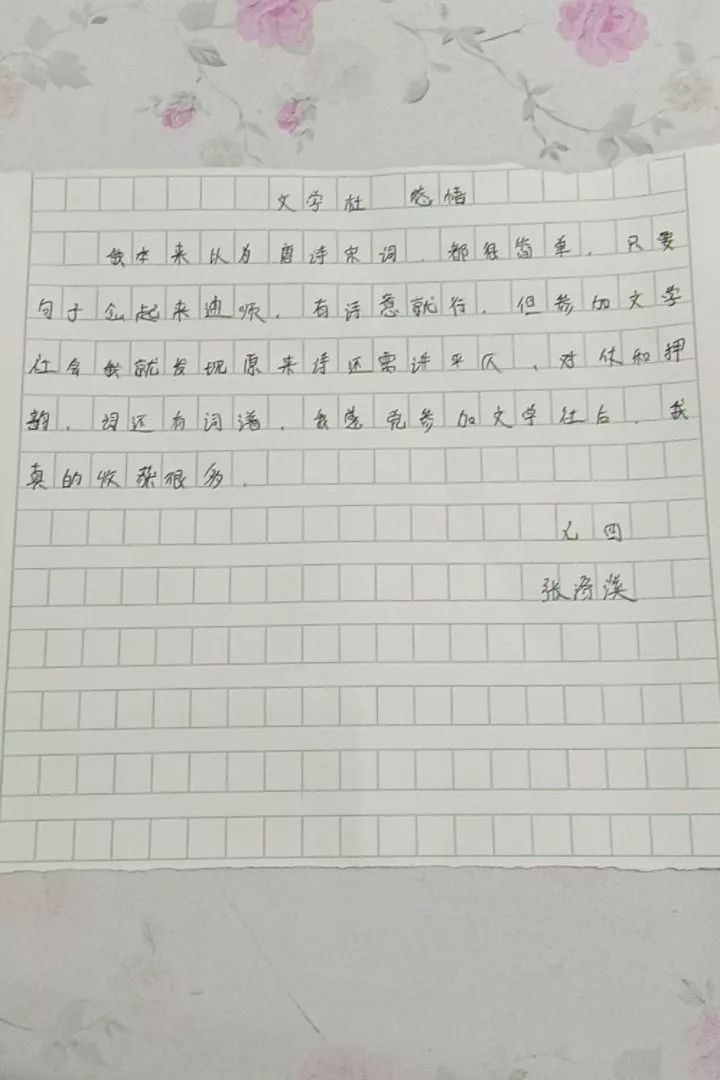 文学社 感悟
我本来认为唐诗宋词，都很简单，只要
句子 起来通顺，有诗意就行，但参加文学
社会我就发现原来诗还需讲平仄、对仗和押
韵，词还有词谱，我感觉参加文学社后，我
真的收获很多，
七四
张 溪